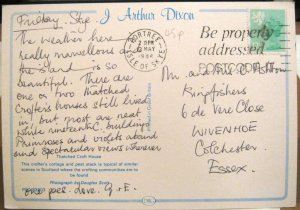 J Arthur Dixon
Friday. Skye
The weather here is
really marvellous and
the Island is so
beautiful. There are
one or two thatched
Crofters houses still lived
in, but most are neat
white nineteenth C. buildings
Primroses and violets abound
and spectacular views wherever
Thatched Croft House
This crofter's cottage and peat stack is typical of similar
scenes in Scotland where the crofting communities are to
be found
Photograph by Douglas
one goes. love. G. & E.
PORTREE
PM
MAY
ISLE OF SKYE
Be properly
addressed
POSTCODE IT
Mr and Mrs D. Ashton
Kingfishers
6 de Vere Close
WIVENHOE
Colchester
Essex.